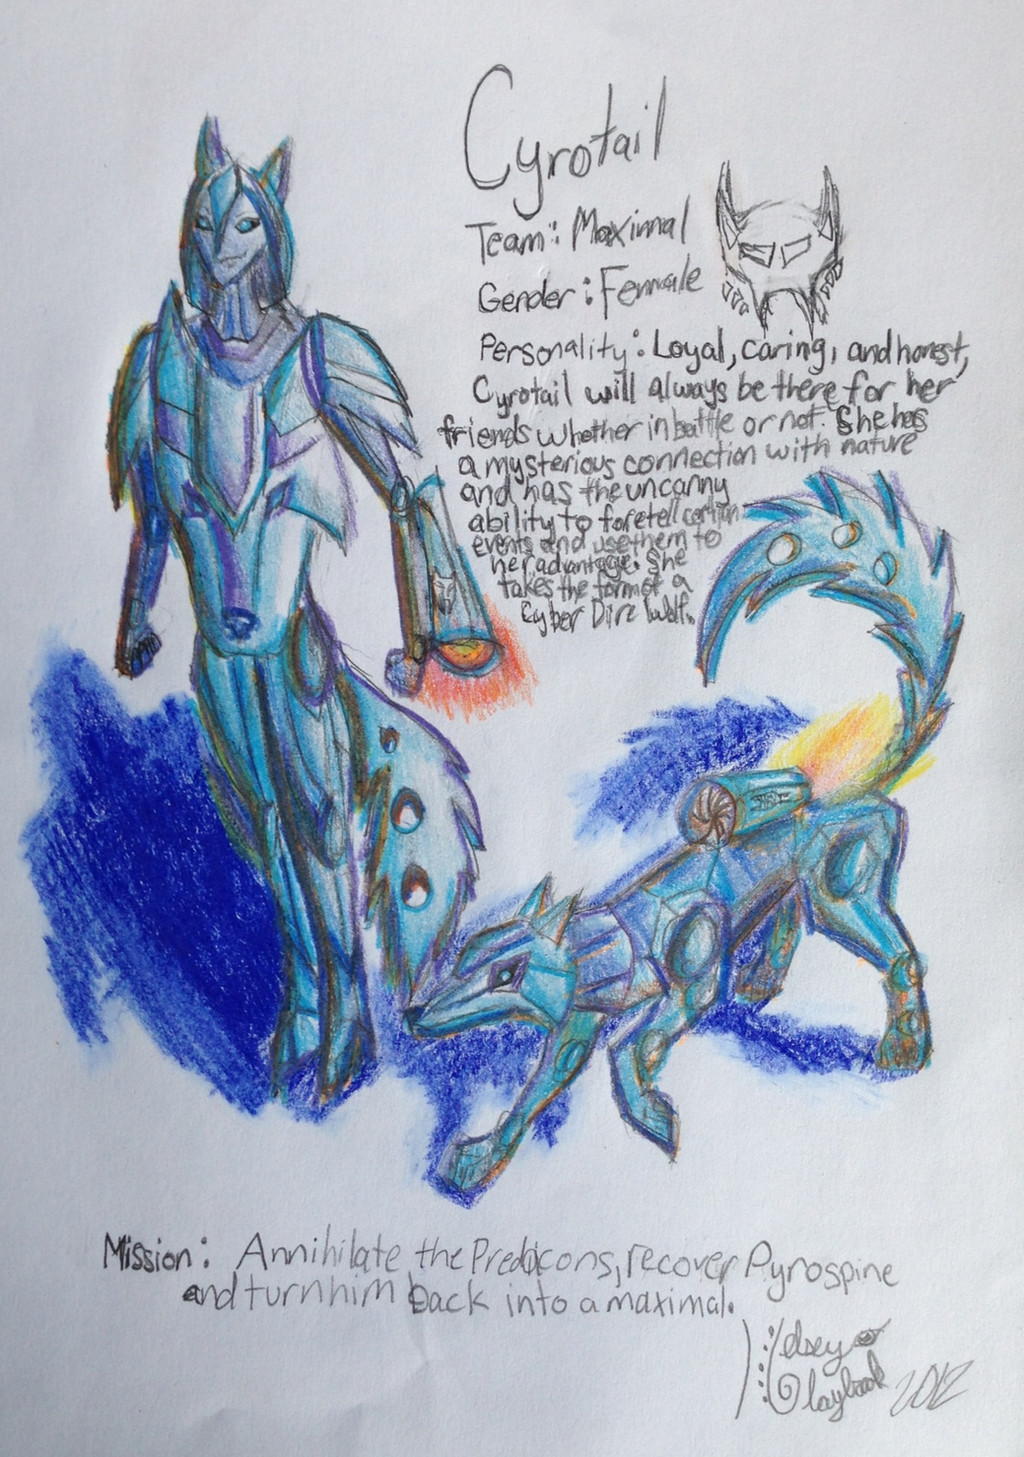 Cyrotail
Team: Maximal
Gender: Female
Personality: Loyal, caring, and honest,
Cyrotail will always be there for her
friends whether in battle or not. She has
a mysterious connection with nature
and has the uncanny
ability to foretell certian
events and use them to
her advantage. She
takes the form of a
Cyber Dire Wolf.
Mission: Annihilate the Predicons, recover Pyrospine
and turn him back into a maximal.
Kelsey
2012